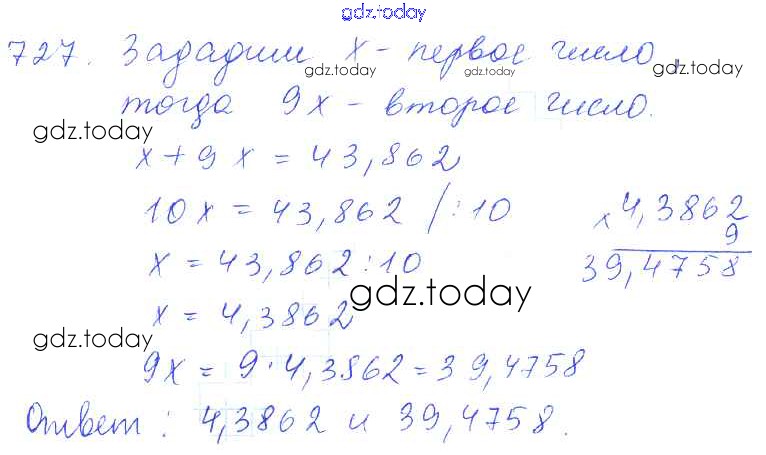 gdz.today
727. Зададим x - первое число,
gdz.today gdz.today
тогда 9x - второе число.
gdz.today
x + 9x = 43,862
10x = 43,862 /:10
x = 43,862:10
x = 4,3862
gdz.today
gdz.today
9x = 9·4,3862 = 39,4758
× 4,3862
9
39,4758
Ответ: 4,3862 и 39,4758.